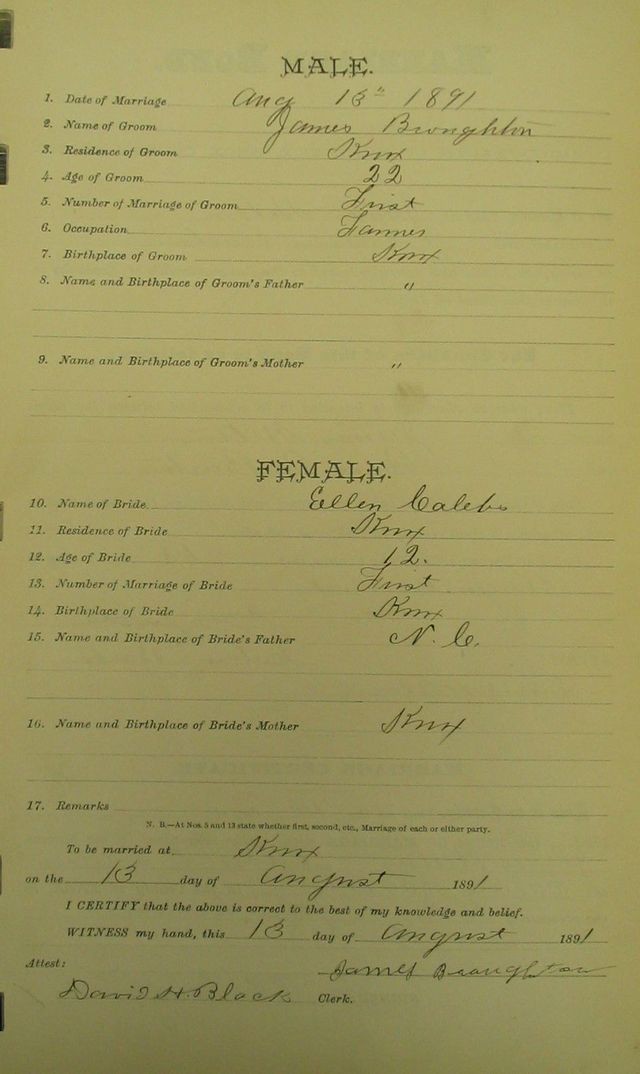 MALE.
1. Date of Marriage Aug 13th 1891
2. Name of Groom James Broughton
3. Residence of Groom Knox
4. Age of Groom 22
5. Number of Marriage of Groom First
6. Occupation Farmer
7. Birthplace of Groom Knox
8. Name and Birthplace of Groom's Father "
9. Name and Birthplace of Groom's Mother "
FEMALE.
10. Name of Bride Ellen Calebs
11. Residence of Bride Knox
12. Age of Bride 12.
13. Number of Marriage of Bride First
14. Birthplace of Bride Knox
15. Name and Birthplace of Bride's Father N. C.
16. Name and Birthplace of Bride's Mother Knox
17. Remarks
N. B.—At Nos. 5 and 13 state whether first, second, etc., Marriage of each or either party.
To be married at Knox
on the 13 day of August 1891
I CERTIFY that the above is correct to the best of my knowledge and belief.
WITNESS my hand, this 13 day of August 1891
Attest: James Broughton
David H. Black Clerk.